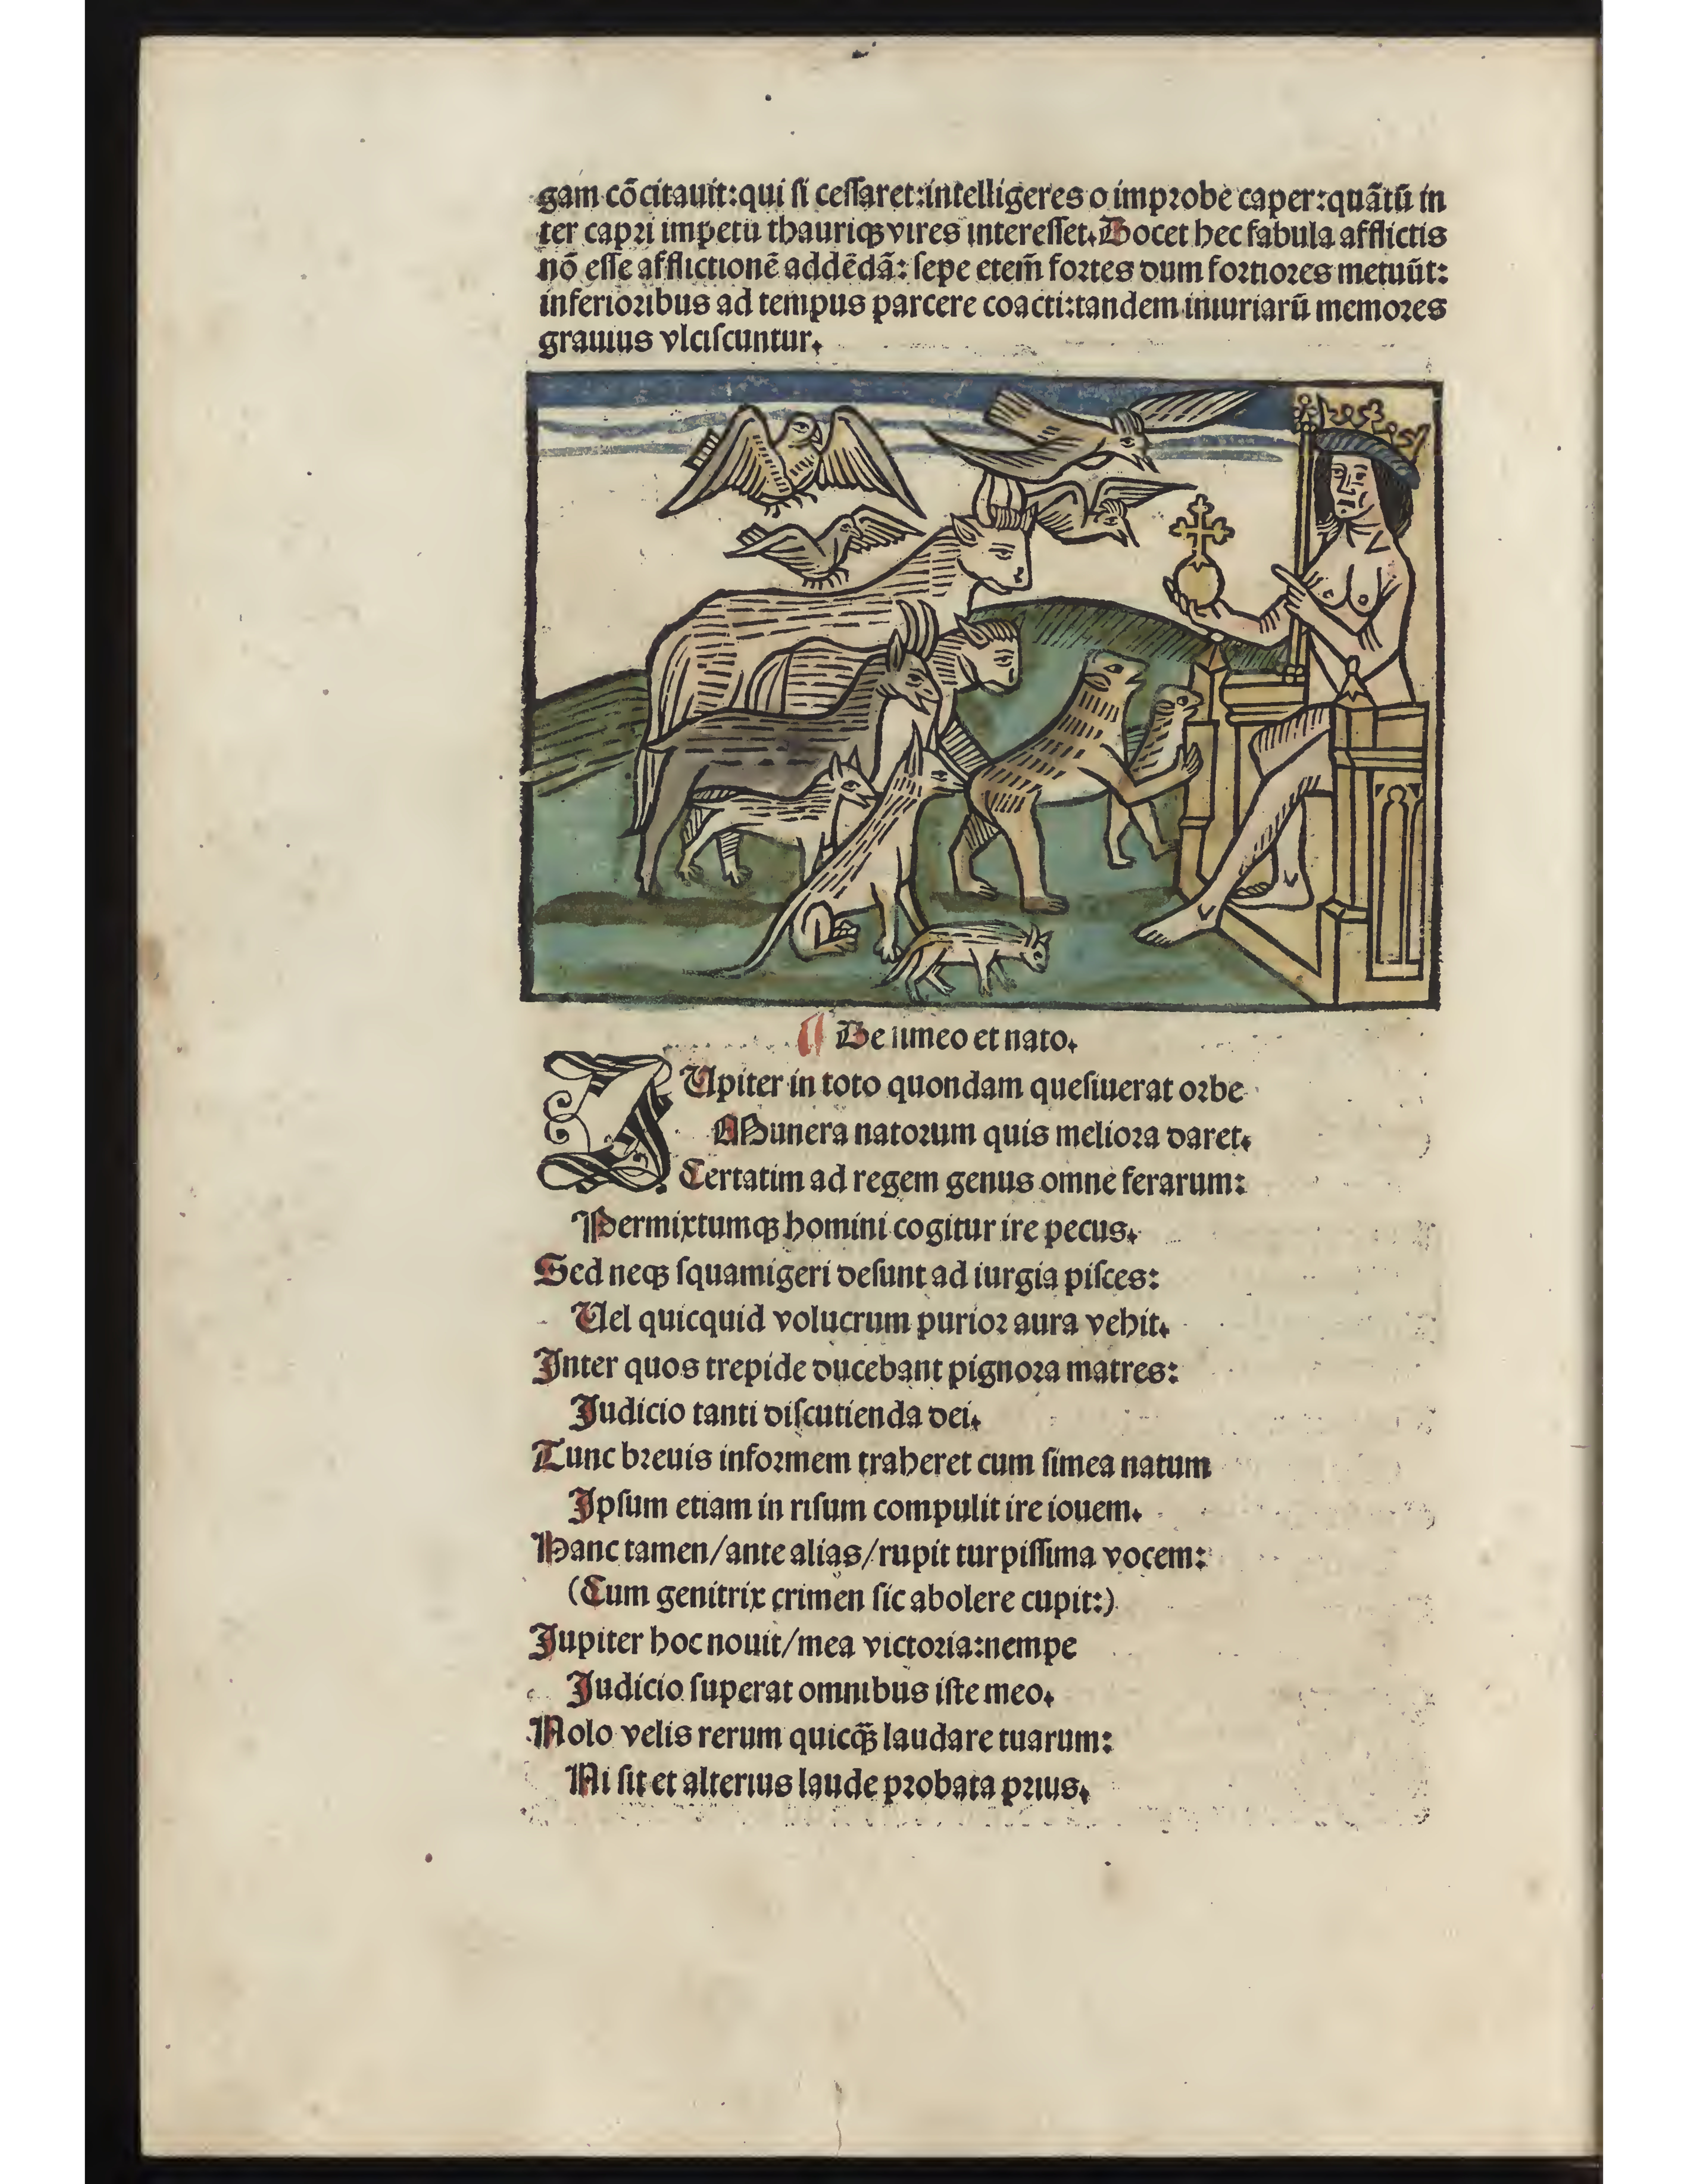 gam cōcitauit:qui ſi ceſſaret:intelligeres o improbe caper:quātū in
ter capri impetū thauriqꝫ vires intereſſet. Docet hec fabula afflictis
nō eſſe afflictionē addēdā: ſepe etem̄ fortes dum fortiores metuūt:
inferioribus ad tempus parcere coacti:tandem iniuriarū memores
grauius vlciſcuntur.
¶ De simeo et nato.
IUpiter in toto quondam queſiuerat orbe
Munera natorum quis meliora daret.
Certatim ad regem genus omne ferarum:
Permixtumqꝫ homini cogitur ire pecus.
Sed neqꝫ ſquamigeri deſunt ad iurgia piſces:
Uel quicquid volucrum purior aura vehit.
Inter quos trepide ducebant pignora matres:
Judicio tanti diſcutienda dei.
Tunc breuis informem traheret cum ſimea natum
Ipſum etiam in riſum compulit ire iouem.
Hanc tamen/ante alias/rupit turpiſſima vocem:
(Cum genitrix crimen ſic abolere cupit:)
Jupiter hoc nouit/mea victoria:nempe
Judicio ſuperat omnibus iſte meo.
Nolo velis rerum quicq̄ꝫ laudare tuarum:
Ni ſit et alterius laude probata prius.